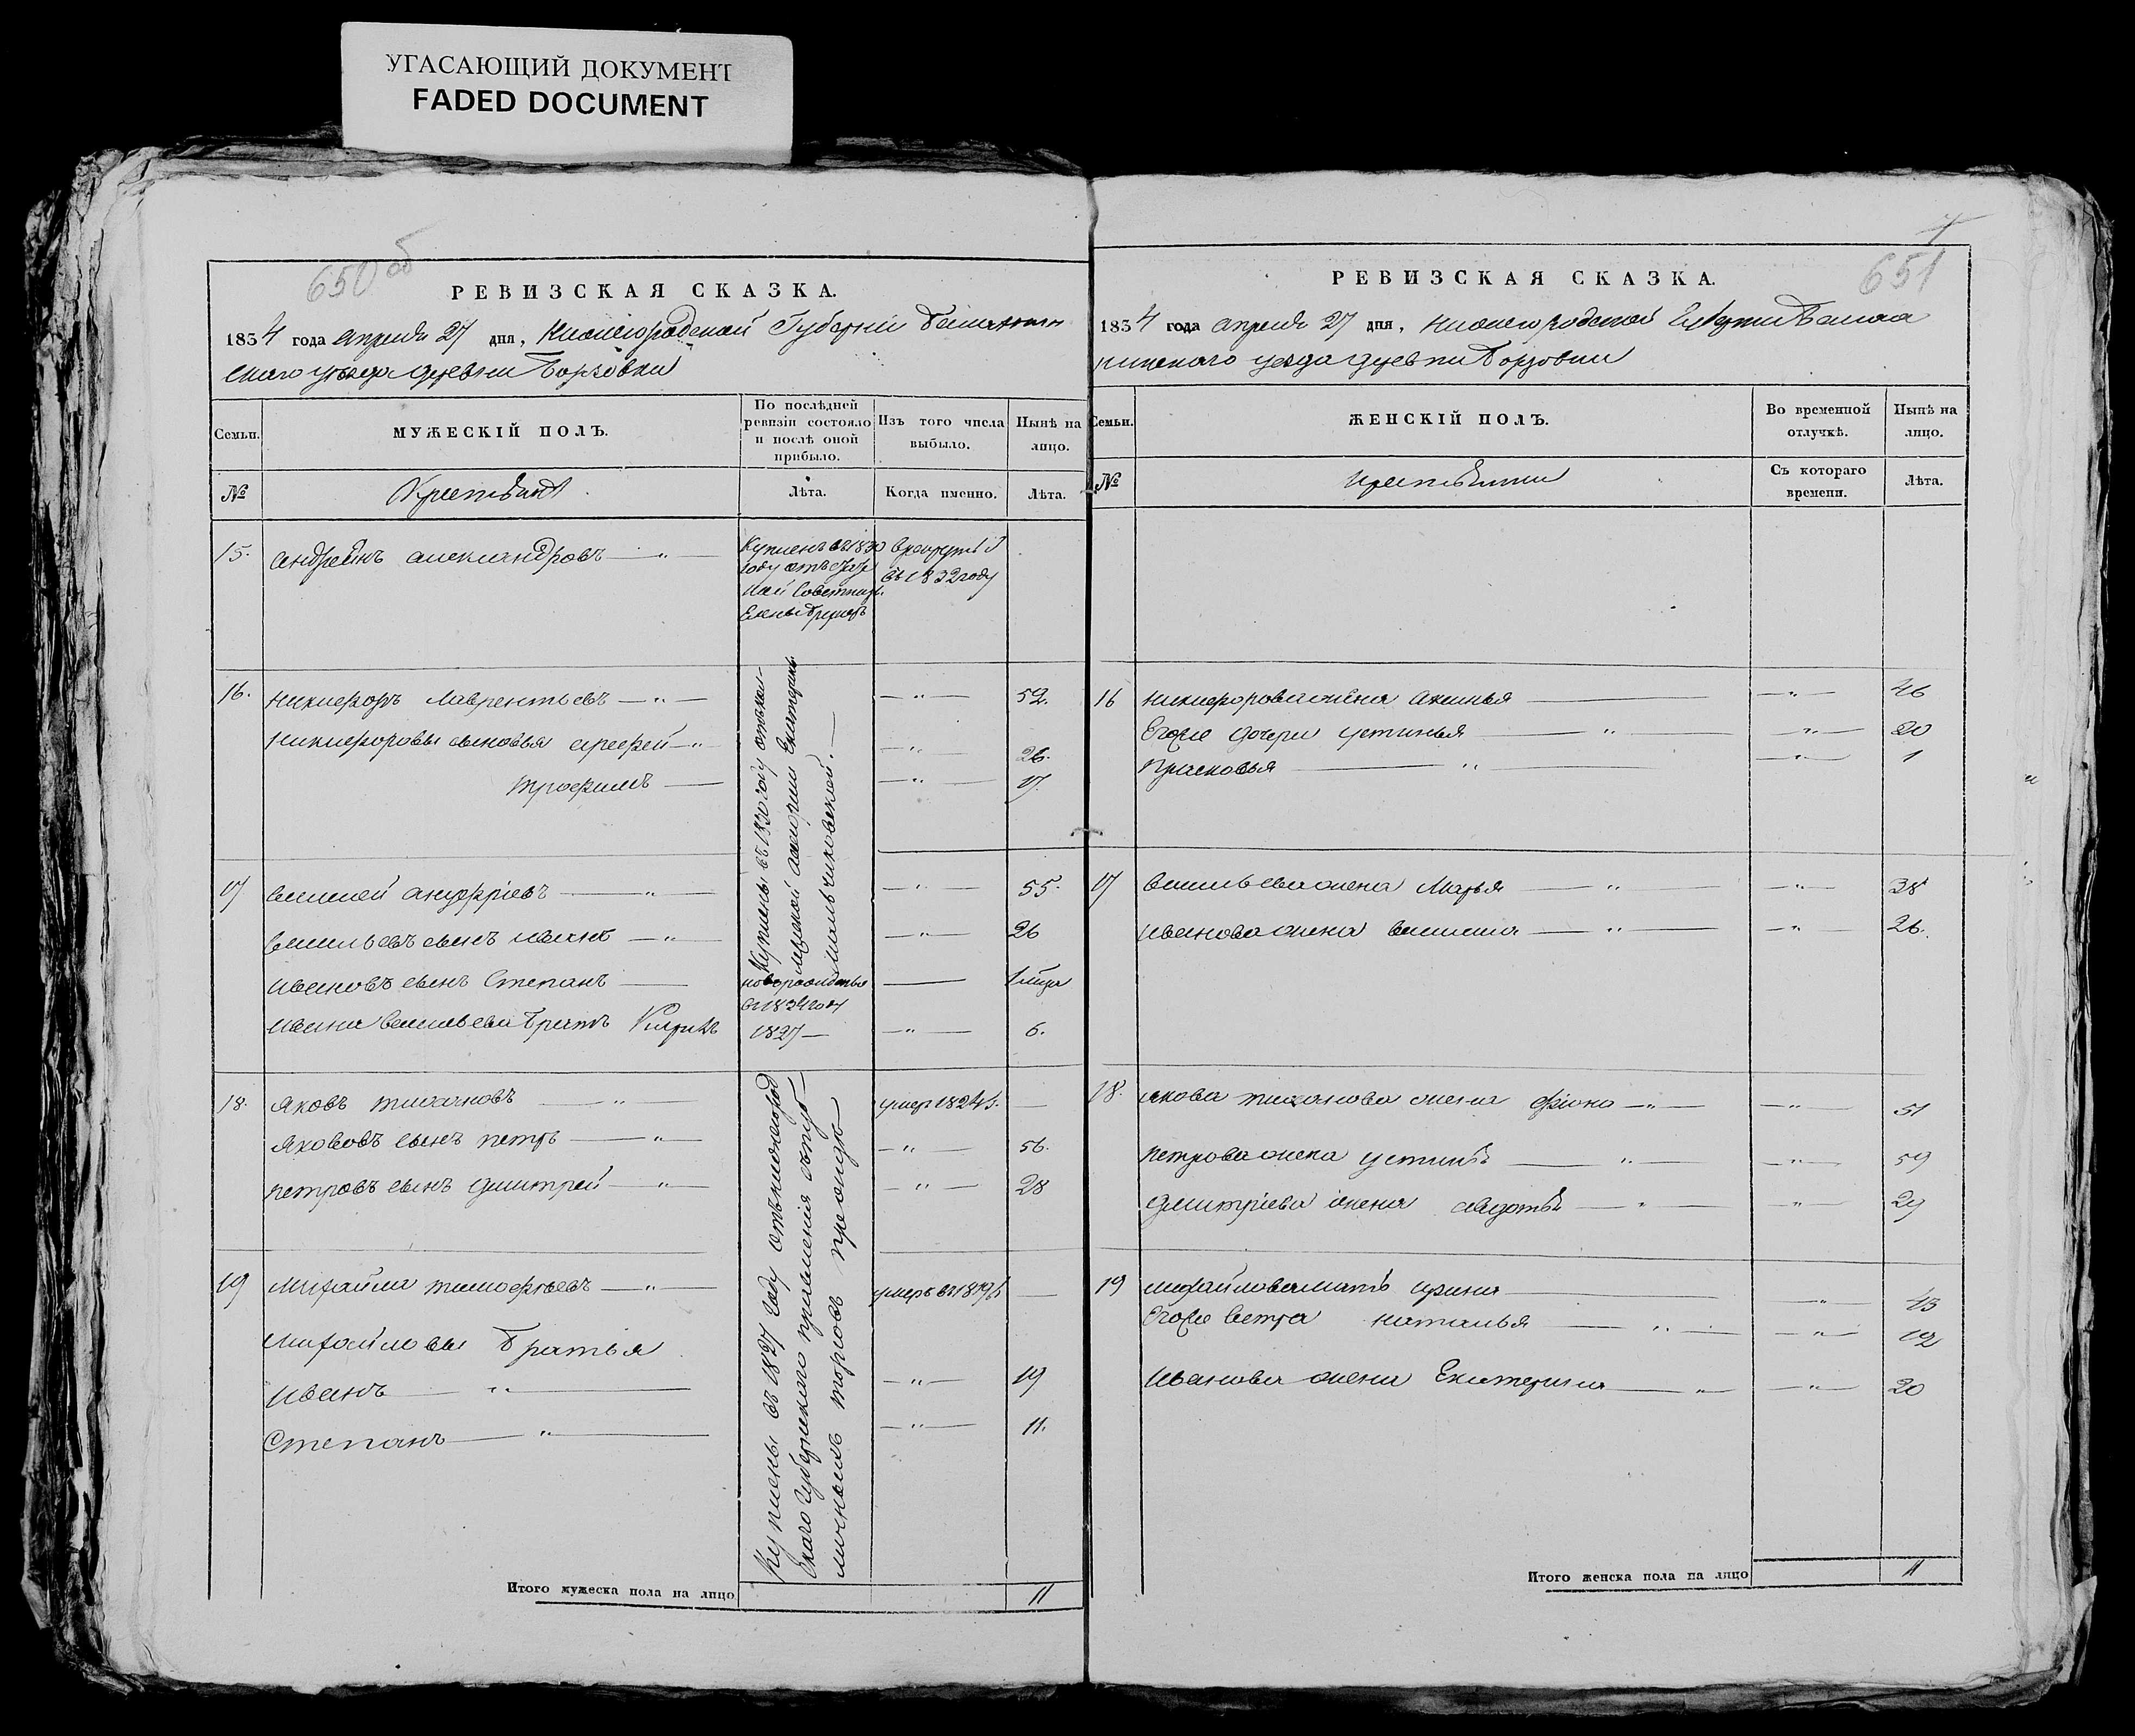 УГАСАЮЩИЙ ДОКУМЕНТ
FADED DOCUMENT
650 об
РЕВИЗСКАЯ СКАЗКА.
1834 года апреля 27 дня, Нижегородской Губернии Балахнин
скаго уѣзда деревни Борзовки
Семьи.
МУЖЕСКІЙ ПОЛЪ.
По послѣдней
ревизіи состояло
и послѣ оной
прибыло.
Изъ того числа
выбыло.
Нынѣ на
лицо.
№
Крестьяне
Лѣта.
Когда именно.
Лѣта.
15. Андреянъ Александровъ — „ —
Купленъ въ 1830
году отъ
Советниц
въ рекруты
въ 1832 году
16. Никифоръ Лаврентьевъ — „ — — „ — 52.
Никифоровы сыновья Арефей — „ — „ — 26.
Трофимъ — — „ — 17.
Куплены въ 1830 году отъ
Екатерины
17 Василей Андреевъ — „ — — „ — 55.
Васильевъ сынъ Иванъ — „ — — „ — 26
Ивановъ сынъ Степанъ — новорожденъ — 1 мца
въ 1834 году
Ивана Васильева братъ 1827 — — „ — 6.
18. Яковъ Тихановъ — „ — умер 1824 — 
Яковъ сынъ Петръ — „ — — „ — 56.
Петровъ сынъ Дмитрей — „ — — „ — 28
19 Михайла Тимофѣевъ — „ — умеръ въ 1819 —
Михайловы братья
Иванъ — „ — — „ — 19
Степанъ — „ — — „ — 11.
Куплены въ 1827 году отъ Нижегород
скаго Губернскаго правления съ публ
личныхъ торговъ
Итого мужеска пола на лицо 11
651
РЕВИЗСКАЯ СКАЗКА.
1834 года апреля 27 дня, Нижегородской Губернии Балах
нинскаго уезда деревни Борзовки
Семьи.
ЖЕНСКІЙ ПОЛЪ.
Во временной
отлучкѣ.
Нынѣ на
лицо.
№
крестьянки
Съ котораго
времени.
Лѣта.
16 Никифорова жена Аксинья — — „ — 46
Егоже дочери Устинья — „ — — „ — 20
Прасковья — „ — — „ — 1
17 Васильева жена Марья — „ — — „ — 38
Иванова жена Василиса — „ — — „ 26.
18. Якова Тиханова жена — „ — — „ — 51
Петрова жена Устинья — „ — — „ — 59
Дмитріева жена Авдотья — „ — — „ — 29
19 Михайлова мать Ирина — — „ — 43
Егоже сестра Наталья — „ — — „ — 12
Иванова жена Екатерина — „ — — „ — 20
Итого женска пола на лицо 11